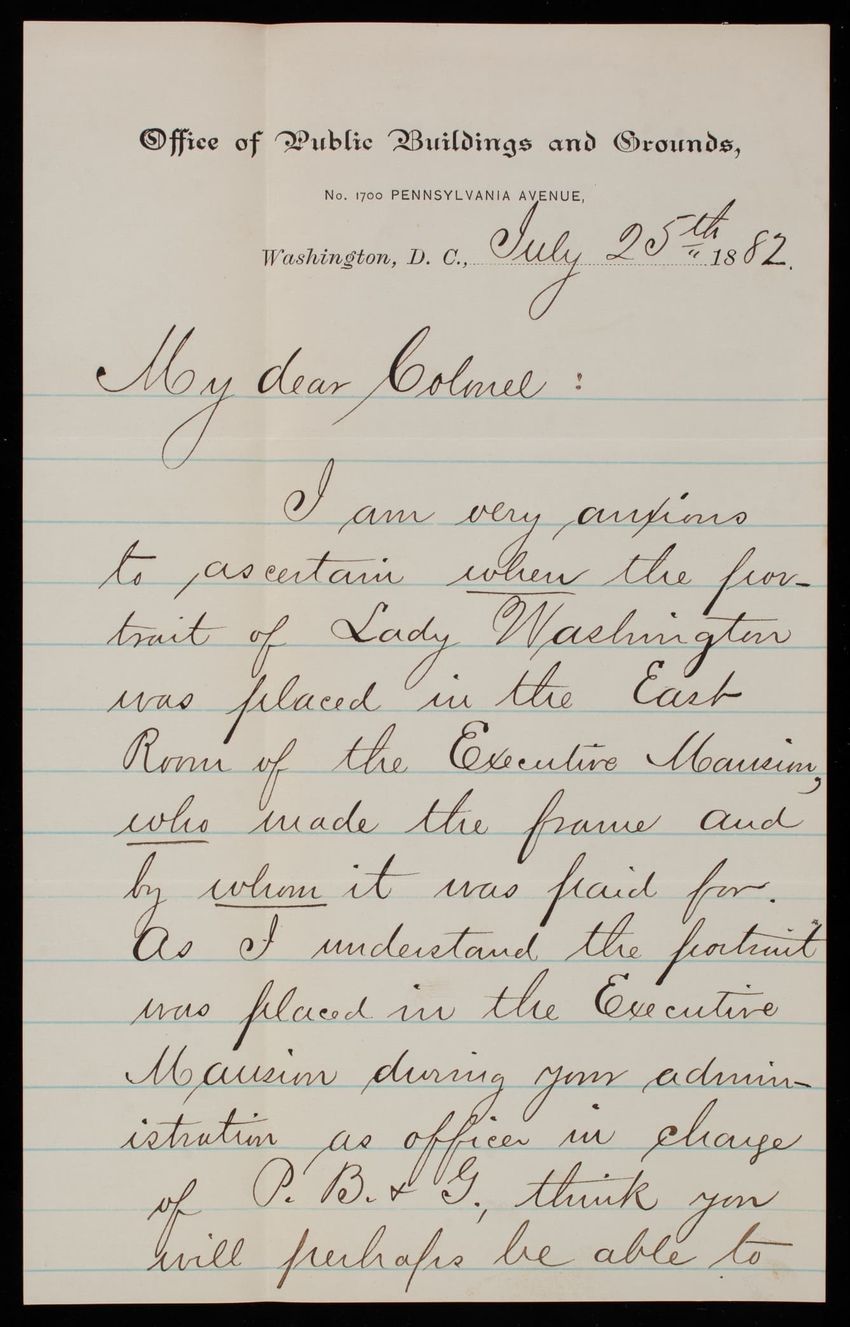 Office of Public Buildings and Grounds,
No. 1700 PENNSYLVANIA AVENUE,
Washington, D. C., July 25th 1882.
My dear Colonel :
I am very anxious
to ascertain when the por-
trait of Lady Washington
was placed in the East
Room of the Executive Mansion,
who made the frame and
by whom it was paid for.
As I understand the portrait
was placed in the Executive
Mansion during your admin-
istration as officer in charge
of P. B. & G., think you
will perhaps be able to